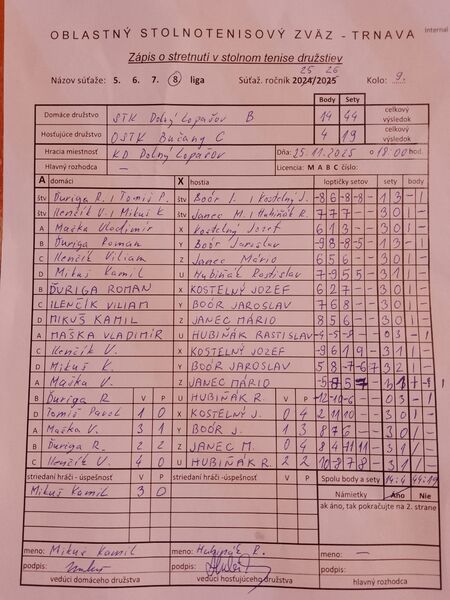 internal
OBLASTNÝ STOLNOTENISOVÝ ZVÄZ - TRNAVA
Zápis o stretnutí v stolnom tenise družstiev
25 26
Názov súťaže: 5. 6. 7. 8 liga Súťaž. ročník 2024/2025 Kolo: 9.
Body Sety
Domáce družstvo STK Dolný Lopašov B 14 44 celkový výsledok
Hosťujúce družstvo OSTK Bučany C 4 19 celkový výsledok
Hracia miestnosť KD Dolný Lopašov Dňa: 25.11.2025 o 18:00 hod.
Hlavný rozhodca — Licencia: M A B C číslo:
A domáci X hostia loptičky setov sety body
štv Ďuriga R. | Tomiš P. štv Boór J. | Kostelný J. -8 6 -8 -8 - 1 3 - 1
štv Ilenčík V. | Mikuš K štv Janec M. | Hubiňák R. 7 7 7 - - 3 0 1 -
A Maška Vladimír X Kostelný Jozef 6 1 3 - - 3 0 1 -
B Ďuriga Roman Y Boór Jaroslav -9 8 -8 -5 - 1 3 - 1
C Ilenčík Viliam Z Janec Mário 6 5 6 - - 3 0 1 -
D Mikuš Kamil U Hubiňák Rastislav -7 9 5 5 - 3 1 1 -
B ĎURIGA ROMAN X KOSTELNÝ JOZEF 6 2 7 - - 3 0 1 -
C ILENČÍK VILIAM Y BOÓR JAROSLAV 7 6 8 - - 3 0 1 -
D MIKUŠ KAMIL Z JANEC MÁRIO 8 5 6 - - 3 0 1 -
A MAŠKA VLADIMÍR U HUBIŇÁK RASTISLAV -4 -5 -8 - - 0 3 - 1
C Ilenčík V. X KOSTELNÝ JOZEF -9 6 1 9 - 3 1 1 -
D Mikuš K. Y BOÓR JAROSLAV 5 8 -7 -6 7 3 2 1 -
A Maška V. Z JANEC MÁRIO
B Ďuriga R V P U HUBIŇÁK R. V P -12 -10 -6 - - 0 3 - 1
D Tomiš Pavol 1 0 X KOSTELNÝ J. 0 4 2 11 10 - - 3 0 1 -
A Maška V. 3 1 Y BOÓR J. 1 3 8 7 6 - - 3 0 1 -
B Ďuriga R. 2 2 Z JANEC M. 0 4 8 4 -11 11 - 3 1 1 -
C Ilenčík V. 4 0 U HUBIŇÁK R. 2 2 10 -8 7 8 - 3 1 1 -
striedaní hráči - domáci V P striedaní hráči - hosťujúci V P Spolu body a sety 14:4 44:19
Mikuš Kamil 3 0 Námietky Áno Nie
ak áno, tak pokračujte na 2. strane
meno: Mikuš Kamil meno: Hubiňák R. meno: —
podpis: podpis: podpis:
vedúci domáceho družstva vedúci hosťujúceho družstva hlavný rozhodca